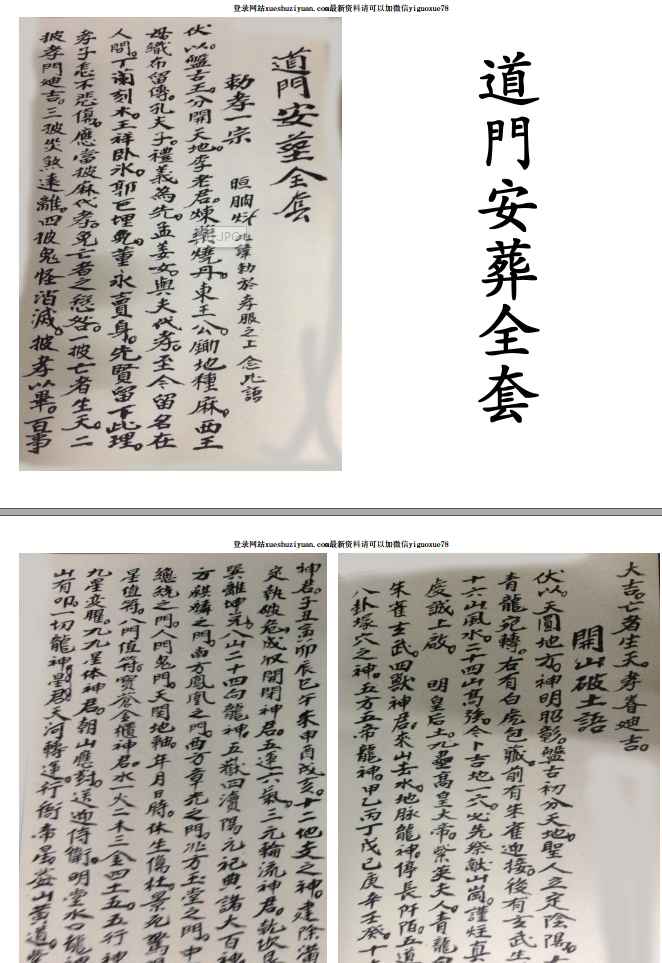 登录网站xueshuziyuan.com最新资料请可以加微信yiguoxue78
道門安葬全套
勅孝一宗
伏以。盤古王。分開天地。李老君。煉藥燒丹。東王公。鋤地種麻。西王
母。織布留傳。孔夫子。禮義為先。孟姜女。與夫代孝。至今留名在
人間。丁蘭刻木。王祥臥氷。郭巨埋兒。董永賣身。先賢留下此理。
孝子怎不悲傷。應當披麻代孝。免亡者之愆咎。一披亡者生天。二
披孝門廸吉。三披災煞遠離。四披鬼怪消滅。披孝以畢。百事
道門安葬全套
登录网站xueshuziyuan.com最新资料请可以加微信yiguoxue78
大吉。亡者生天。孝眷廸吉。
開山破土語
伏以。天圓地方。神明昭彰。盤古初分天地。聖人立定陰陽。
青龍宛轉。右有白虎包藏。前有朱雀迎接。後有玄武生
十六山風水。二十四山高強。今卜吉地一穴。必先祭獻山崗。謹炷真
虔誠上啟。明皇后土。九壘高皇大帝。紫英夫人。青龍白
朱雀玄武。四獸神君。來山去水。地脉龍神。停長阡陌。五道
八卦塚穴之神。五方五帝龍神。甲乙丙丁戊己庚辛壬癸。十
神君。子丑寅卯辰巳午未申酉戌亥。十二地支之神。建除滿
定執破危。成收開閉神君。五運六氣。三元輪流神君。乾坎艮
巽離坤兌。八山二十四向龍神。五嶽四瀆。陽元祀典。諸大百神
方麒麟之門。南方鳳凰之門。西方章光之門。北方玉堂之門。中
總統之門。人門鬼門。天関地軸。年月日時。休生傷杜。景死驚
星值符。八門值符。寶蒼金櫃神君。水一火二木三金四土五。五行神
九星変曜。九九星体神君。朝山應對。送迎侍衛。明堂水口龍
山有叩。一切龍神。星君。天河轉運。行衙帝